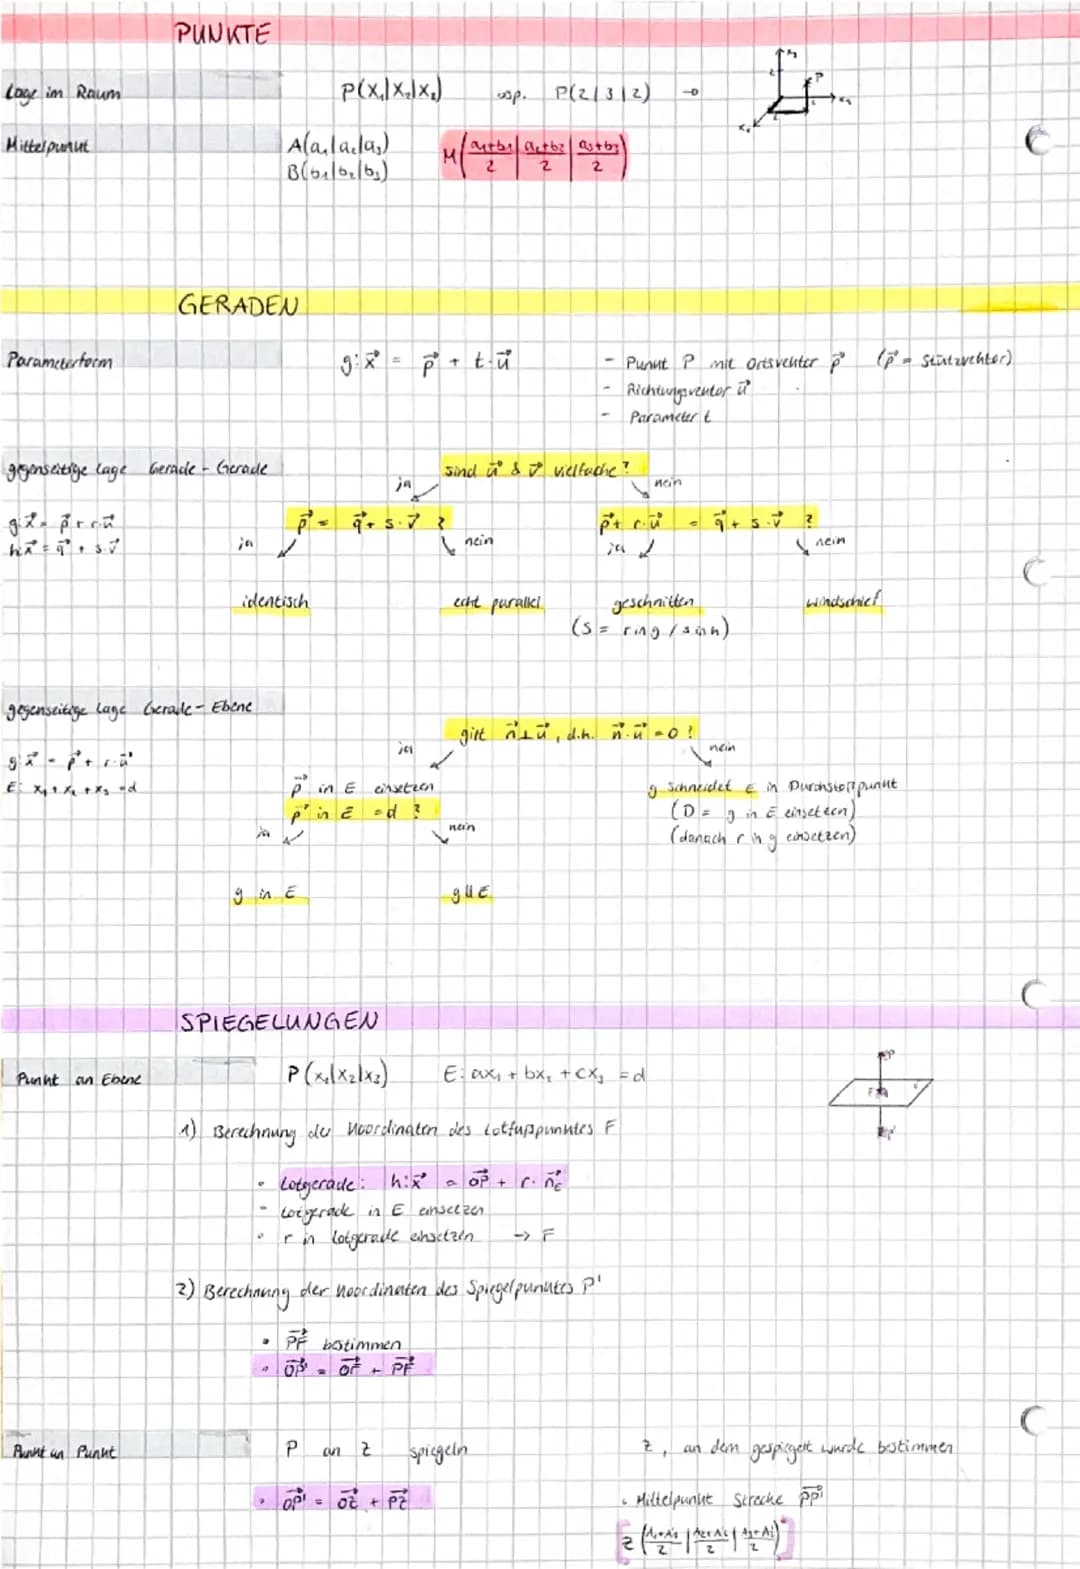 PUNKTE
Lage im Raum P(x₁|x₂|x₃) bsp. P(2|3|2) →
Mittelpunkt A(a₁|a₂|a₃) M(a₁+b₁/2 | a₂+b₂/2 | a₃+b₃/2)
B(b₁|b₂|b₃)
GERADEN
Parameterform g: x⃗ = p⃗ + t·u⃗ - Punkt P mit Ortsvektor p⃗ (p⃗ = Stützvektor)
- Richtungsvektor u⃗
- Parameter t
gegenseitige Lage Gerade - Gerade sind u⃗ & v⃗ vielfache?
ja nein
g: x⃗ = p⃗ + r·u⃗ p⃗ = q⃗ + s·v⃗ ? p⃗ + r·u⃗ = q⃗ + s·v⃗ ?
h: x⃗ = q⃗ + s·v⃗ ja nein ja nein
identisch echt parallel geschnitten windschief
(S = r in g / s in h)
gegenseitige Lage Gerade - Ebene
gilt n⃗⊥u⃗, d.h. n⃗·u⃗ = 0 ?
ja nein
g: x⃗ = p⃗ + r·u⃗
E: x₁ + x₂ + x₃ = d p⃗ in E einsetzen g schneidet E in Durchstoßpunkt
p⃗ in E = d ? (D = g in E einsetzen)
ja nein (danach r in g einsetzen)
g in E g || E
SPIEGELUNGEN
Punkt an Ebene P(x₁|x₂|x₃) E: ax₁ + bx₂ + cx₃ = d
1) Berechnung der Koordinaten des Lotfußpunktes F
• Lotgerade: h: x⃗ = OP⃗ + r·n⃗E
- Lotgerade in E einsetzen
• r in Lotgerade einsetzen → F
2) Berechnung der Koordinaten des Spiegelpunktes P'
• PF⃗ bestimmen
• OP'⃗ = OF⃗ + PF⃗
Punkt an Punkt P an Z spiegeln Z, an dem gespiegelt wurde bestimmen
• OP'⃗ = OZ⃗ + PZ⃗ • Mittelpunkt Strecke PP'⃗
[Z(A₁+A'₁/2 | A₂+A'₂/2 | A₃+A'₃/2)]